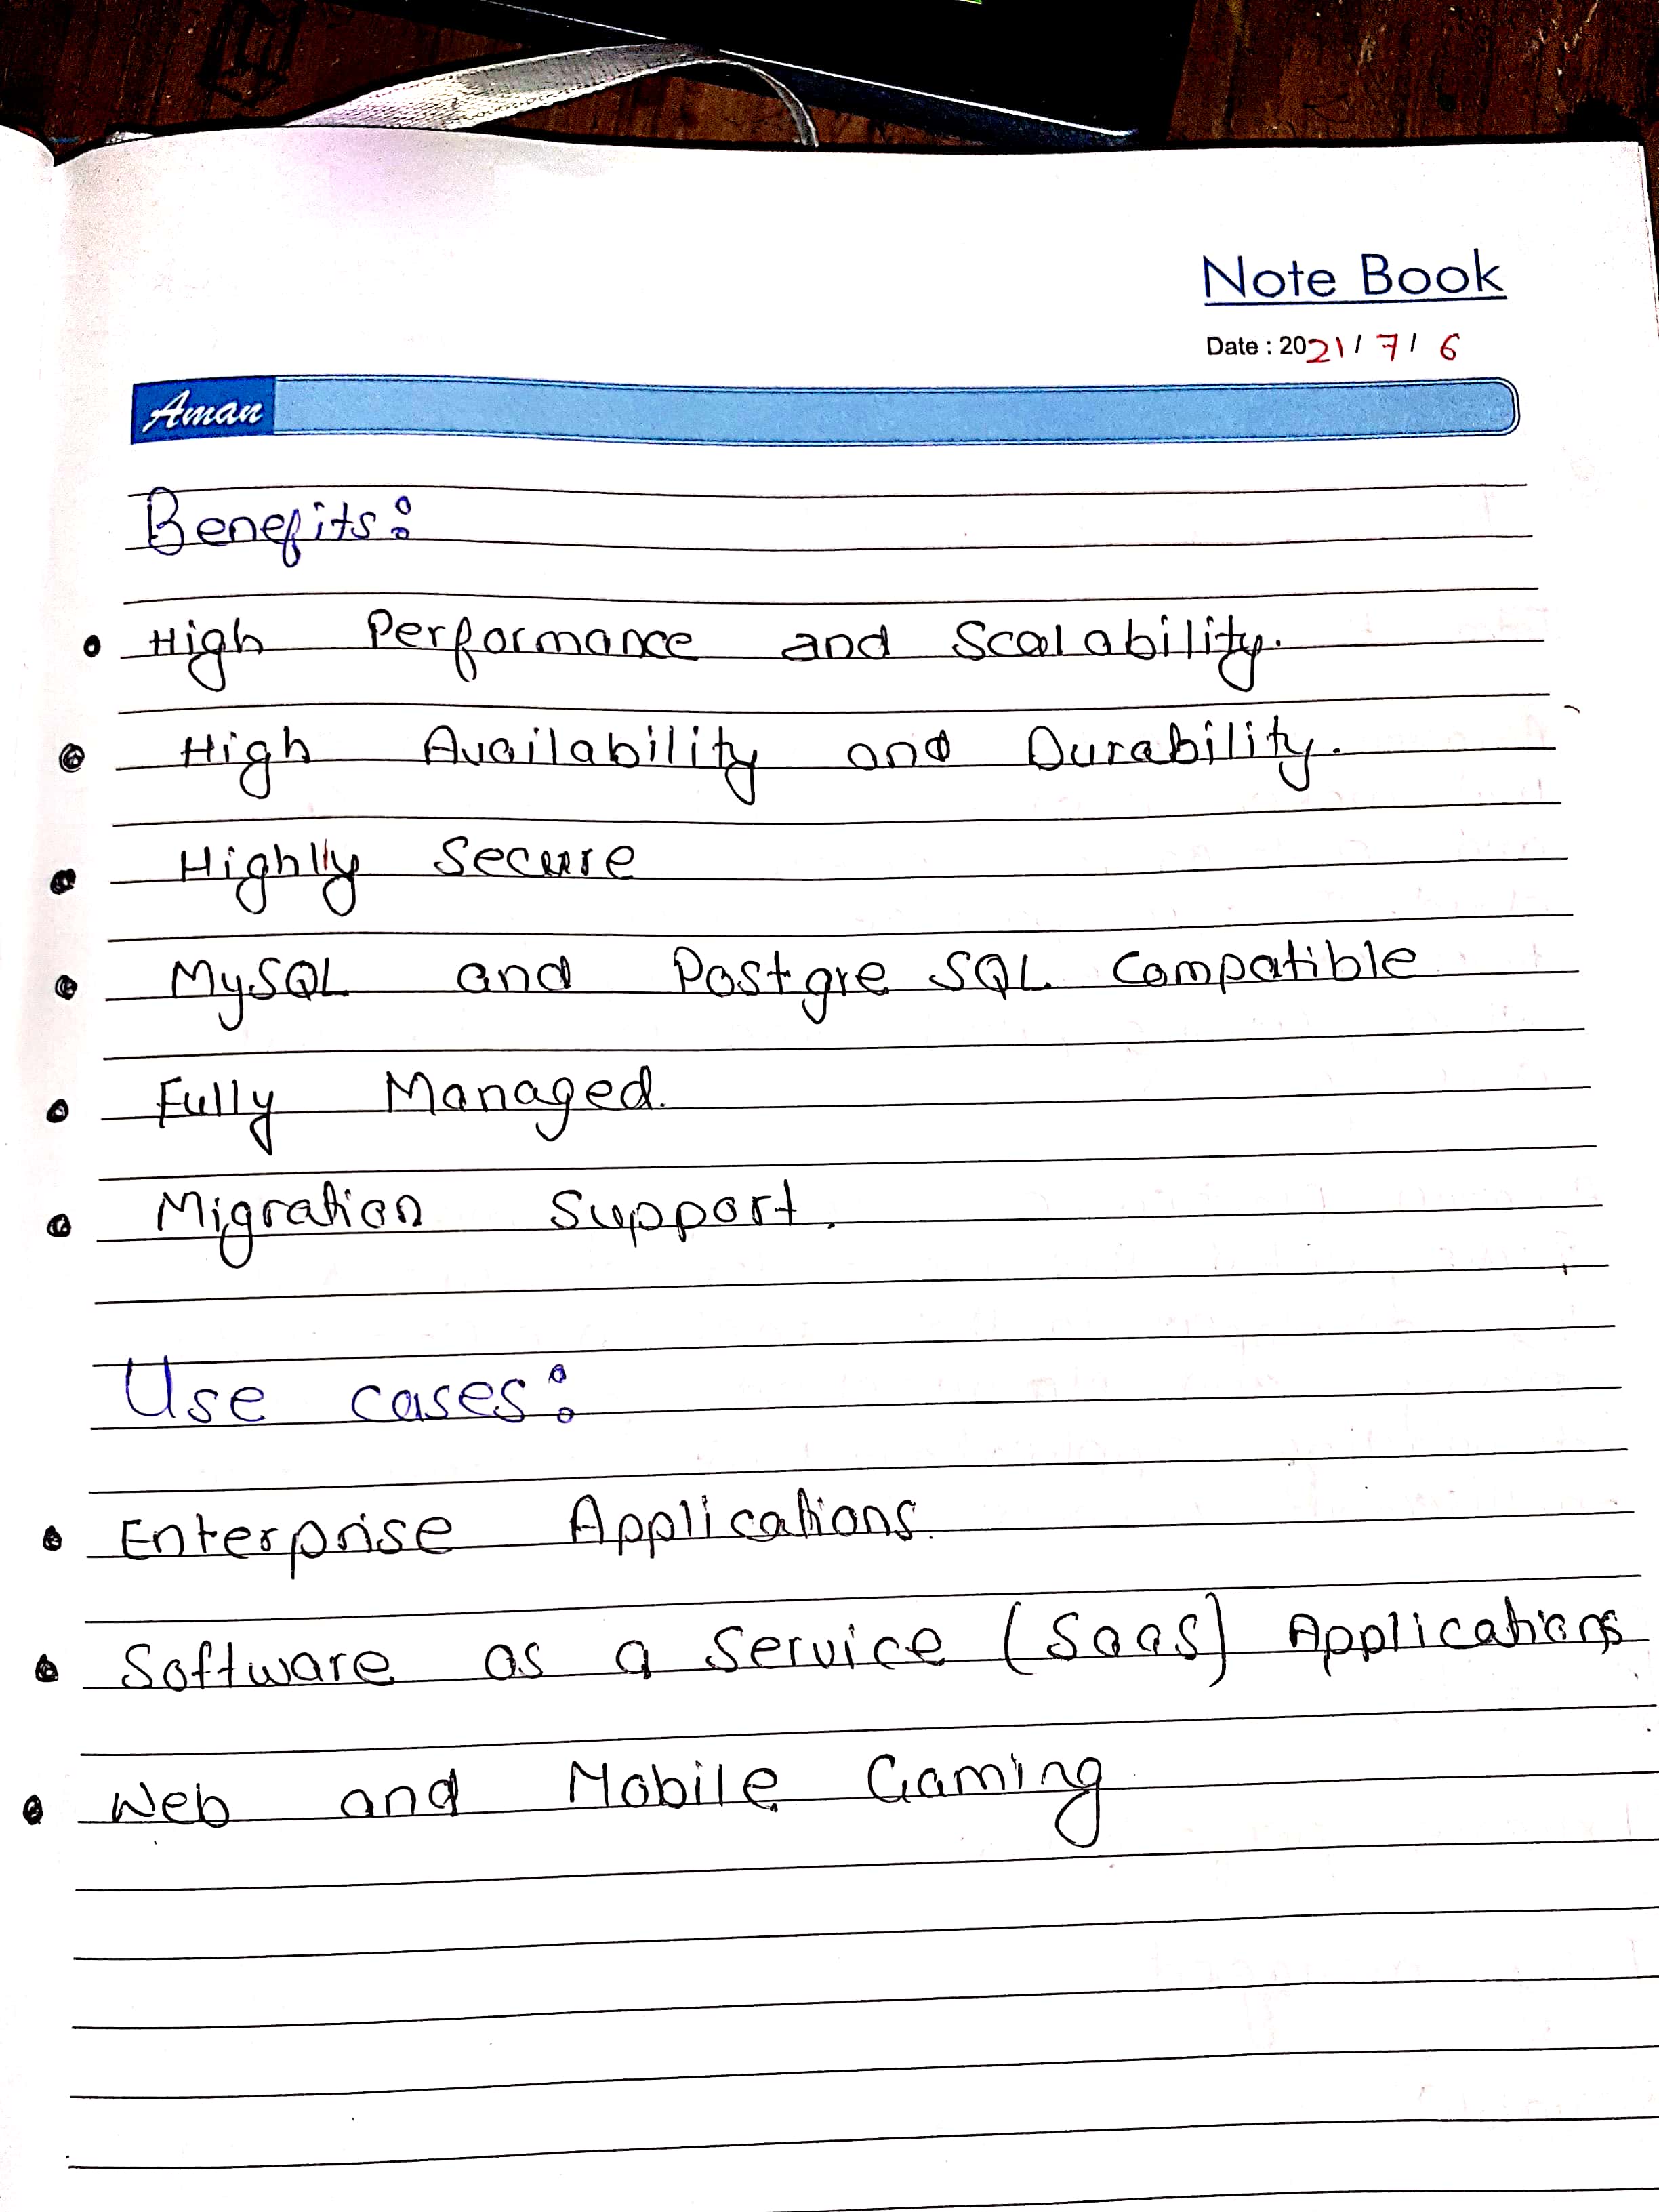 Note Book
Date : 2021/7/6
Aman
Benefits:
• High Performance and Scalability.
• High Availability and Durability.
• Highlly Secure
• MySQL and Postgre SQL Compatible
• Fully Managed.
• Migration Support.
Use cases:
• Enterprise Applications.
• Software as a Service (SaaS) Applications
• Web and Mobile Gaming